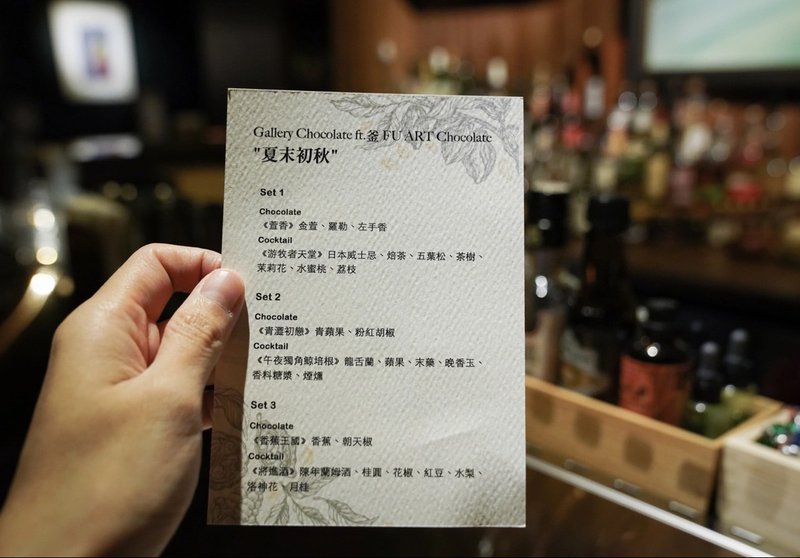 Gallery Chocolate ft.釜 FU ART Chocolate
"夏末初秋"
Set 1
Chocolate
《萱香》金萱、羅勒、左手香
Cocktail
《游牧者天堂》日本威士忌、焙茶、五葉松、茶樹、
茉莉花、水蜜桃、荔枝
Set 2
Chocolate
《青澀初戀》青蘋果、粉紅胡椒
Cocktail
《午夜獨角鯨培根》龍舌蘭、蘋果、末藥、晚香玉、
香料糖漿、煙燻
Set 3
Chocolate
《香蕉王國》香蕉、朝天椒
Cocktail
《將進酒》陳年蘭姆酒、桂圓、花椒、紅豆、水梨、
洛神花、月桂